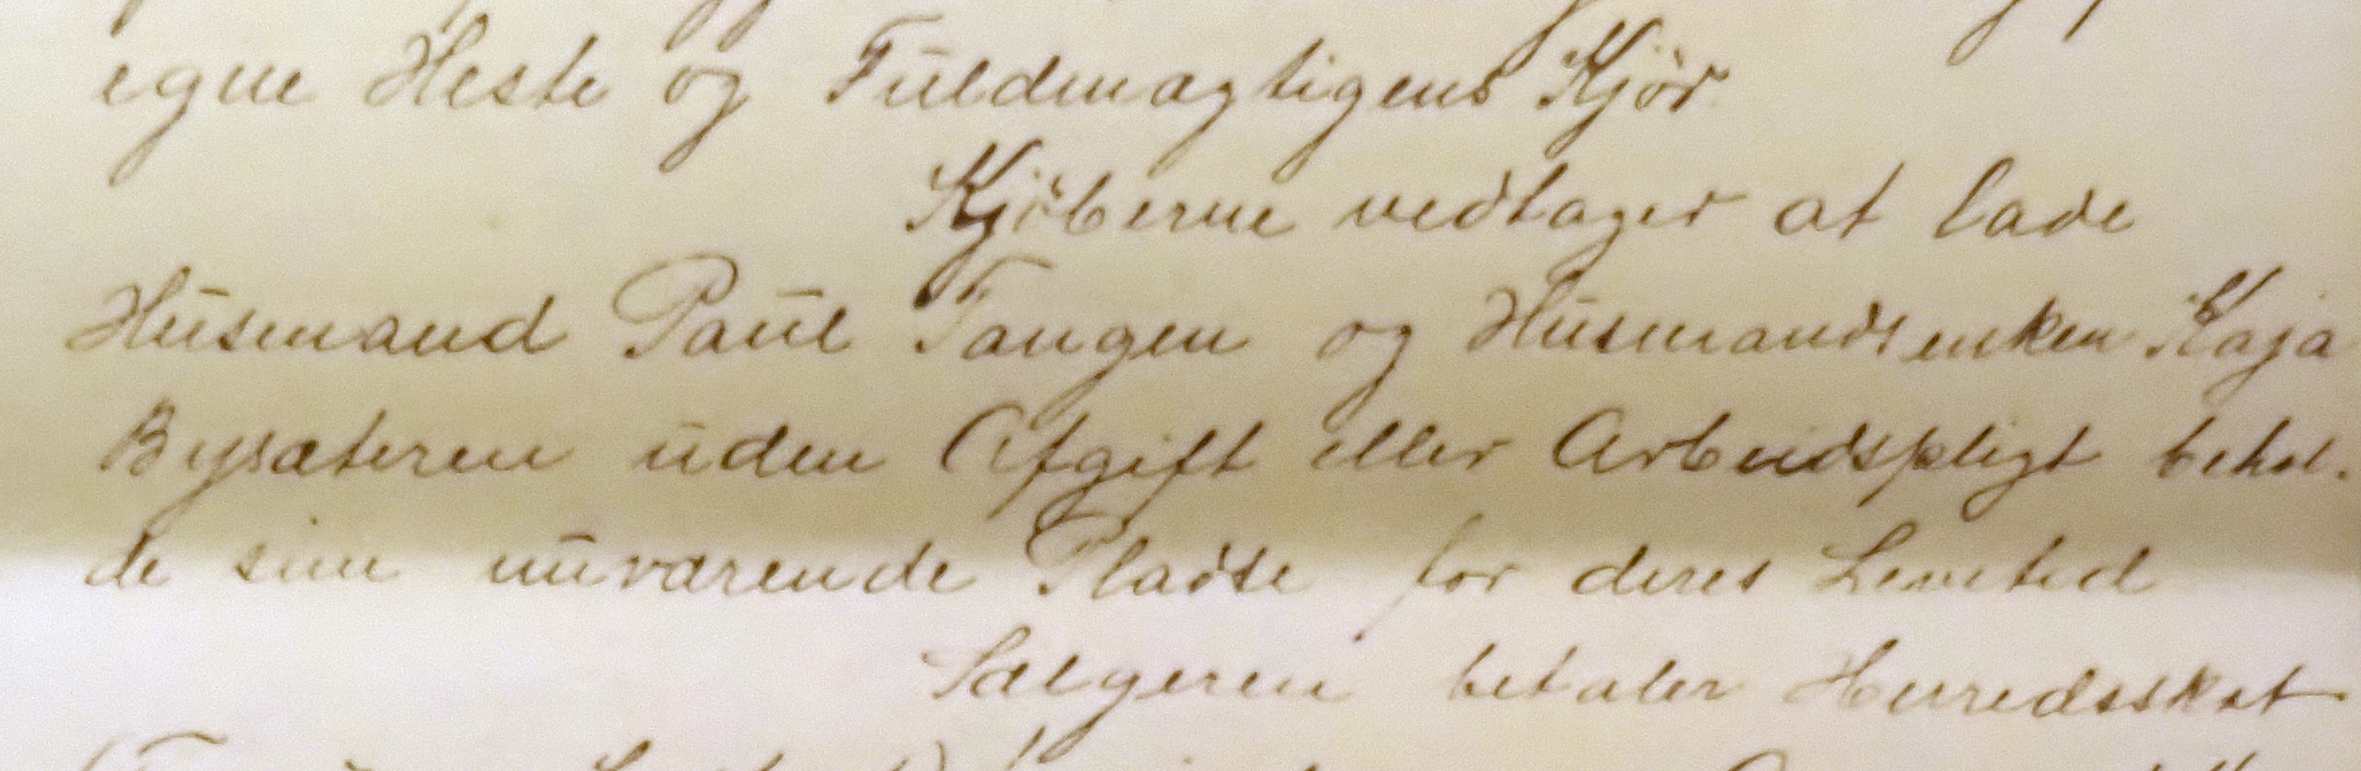 egne Heste og Fuldmagtigens Kjør
Kjøberne vedtager at lade
Husmand Paul Tangen og Husmandsenken Kaja
Bysæteren uden Afgift eller Arbeidspligt behol-
de sine nuværende Pladse for deres Levetid
Sælgeren betaler Herredsskat